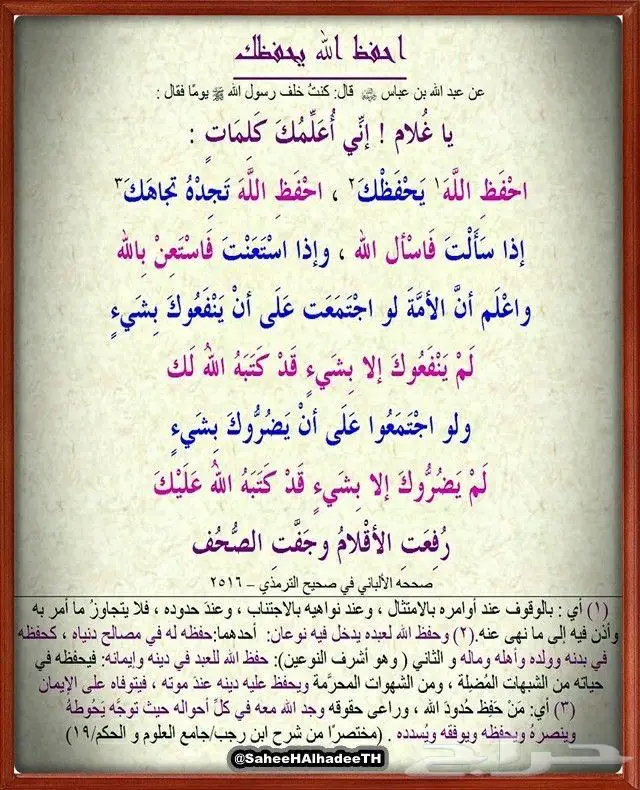 احفظ الله يحفظك
عن عبد الله بن عباس ﵁ قال: كنتُ خلف رسول الله ﷺ يومًا فقال :
يا غُلام ! إنِّي أُعَلِّمُكَ كَلِمَاتٍ :
احْفَظِ اللَّهَ¹ يَحْفَظْكَ² ، احْفَظِ اللَّهَ تَجِدْهُ تجاهَكَ³
إذا سَأَلْتَ فَاسْأل الله ، وإذا اسْتَعَنْتَ فَاسْتَعِنْ بِالله
واعْلَم أنَّ الأمَّةَ لو اجْتَمَعَت عَلَى أنْ يَنْفَعُوكَ بِشَيءٍ
لَمْ يَنْفَعُوكَ إلا بِشَيءٍ قَدْ كَتَبَهُ اللهُ لَك
ولو اجْتَمَعُوا عَلَى أنْ يَضُرُّوكَ بِشَيءٍ
لَمْ يَضُرُّوكَ إلا بِشَيءٍ قَدْ كَتَبَهُ اللهُ عَلَيْكَ
رُفِعَتِ الأقْلامُ وجَفَّتِ الصُّحُف
صححه الألباني في صحيح الترمذي – ٢٥١٦
(١) أي : بالوقوف عند أوامره بالامتثال ، وعند نواهيه بالاجتناب ، وعندَ حدوده ، فلا يتجاوزُ ما أمر به
وأذن فيه إلى ما نهى عنه.(٢) وحفظ الله لعبده يدخل فيه نوعان: أحدهما:حفظه له في مصالح دنياه ، كحفظه
في بدنه وولده وأهله وماله و الثاني ( وهو أشرف النوعين): حفظ الله للعبد في دينه وإيمانه: فيحفظه في
حياته من الشبهات المُضِلة ، ومن الشهوات المحرَّمة ويحفظ عليه دينه عندَ موته ، فيتوفاه على الإيمان
(٣) أي: مَنْ حَفِظ حُدودَ الله ، وراعى حقوقه وجد الله معه في كلِّ أحواله حيث توجَّه يَحُوطهُ
وينصرهُ ويحفظه ويوفقه ويُسدده . (مختصرًا من شرح ابن رجب/جامع العلوم و الحكم/١٩)
@SaheeHAlhadeeTH
حراج